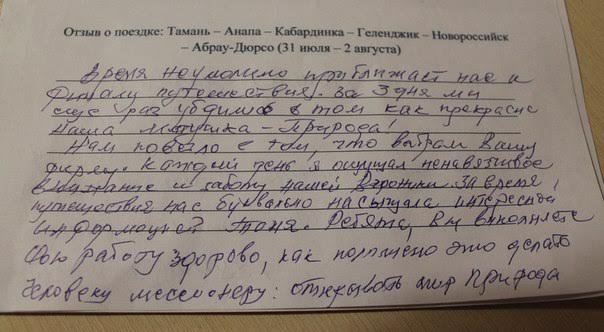 Отзыв о поездке: Тамань – Анапа – Кабардинка – Геленджик – Новороссийск
– Абрау-Дюрсо (31 июля – 2 августа)
Время неумолимо приближает нас к
финалу путешествия. За 3 дня мы
еще раз убедились в том как прекрасна
наша матушка – Природа!
Нам повезло в том, что выбрали Вашу
фирму. Каждый день я ощущал ненавязчивое
внимание и заботу нашей Вероники. За время
путешествия нас буквально насыщала интересной
информацией Таня. Ребята, Вы выполняете
свою работу здорово, как положено это делать
человеку мессенджеру: открывать мир Природы